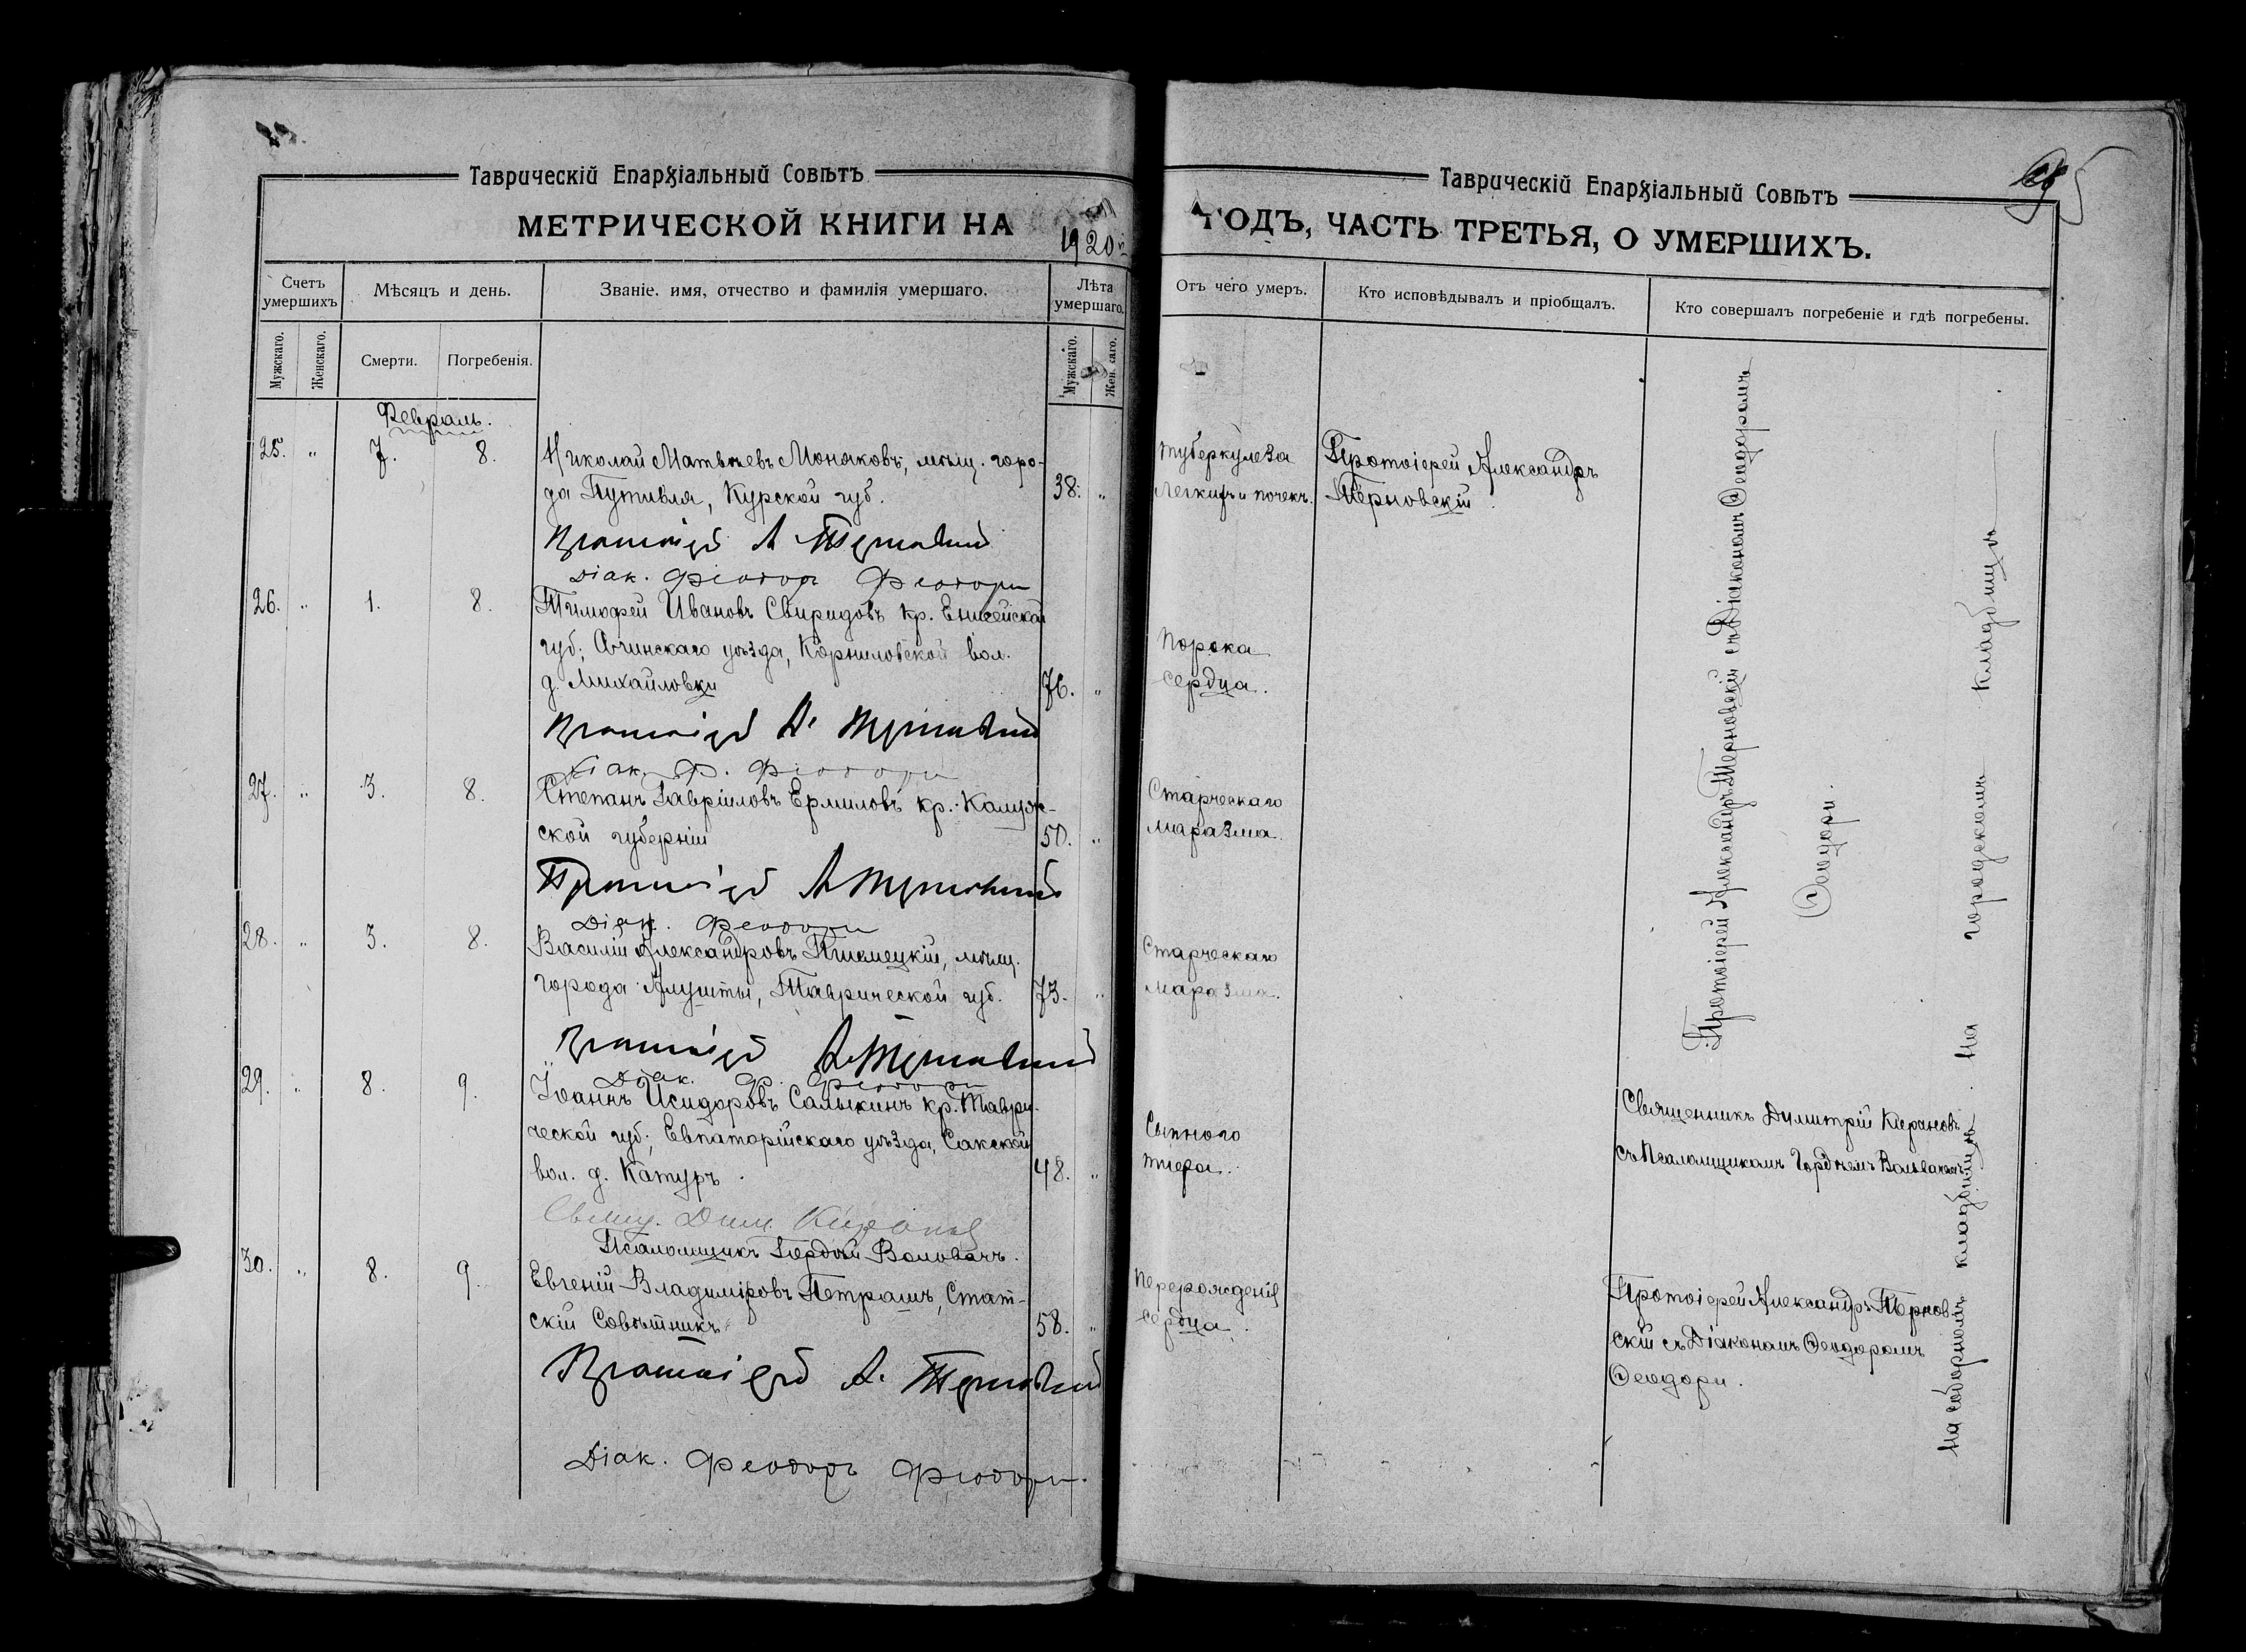 Таврическій Епархіальный Совѣтъ
МЕТРИЧЕСКОЙ КНИГИ НА 1920
Счетъ умершихъ
Мѣсяцъ и день.
Званіе, имя, отчество и фамилія умершаго.
Лѣта умершаго.
Мужскаго.
Женскаго.
Смерти.
Погребенія.
Мужскаго.
Февраль.
25. " 7. 8. Николай Матвѣевъ Моняковъ, мѣщ. горо-
да Путивля, Курской губ. 38. "
Протоіерей А Терновскій
Діак. Феодоръ Феодори
26. " 1. 8. Тимофей Ивановъ Свиридовъ кр. Енисейской
губ; Ачинскаго уѣзда, Корниловской вол.
д. Михайловки 76. "
Протоіерей А. Терновскій
Діак. Ф. Феодори
27. " 3. 8. Степанъ Гавріиловъ Ермиловъ кр. Калуж-
ской губерніи 50. "
Протоіерей А Терновскій
Діак. Феодори
28. " 3. 8. Василій Александровъ мѣщ.
города Алушты, Таврической губ. 73. "
Протоіерей А. Терновскій
Діак. Ф. Феодори
29. " 8. 9. Іоаннъ Исидоровъ Салыкинъ кр. Таври-
ческой губ; Евпаторійскаго уѣзда, Сакской
вол. д. Катуръ 48. "
Свящ. Дим.
Псаломщикъ Гордѣй Воловачъ.
30. " 8. 9. Евгеній Владиміровъ Петрашъ, Стат-
скій Совѣтникъ 58. "
Протоіерей А. Терновскій
Діак. Феодоръ Феодори.
Таврическій Епархіальный Совѣтъ
ГОДЪ, ЧАСТЬ ТРЕТЬЯ, О УМЕРШИХЪ.
Отъ чего умеръ.
Кто исповѣдывалъ и пріобщалъ.
Кто совершалъ погребеніе и гдѣ погребены.
туберкулеза
легкихъ и почекъ.
Протоіерей Александръ
Терновскій
Порока
сердца.
Старческаго
маразма.
Старческаго
маразма.
Сыпного
тифа.
Перерожденія
сердца.
Протоіерей Александръ Терновскій съ Діакономъ Ѳеодоромъ
Ѳеодори.
На городскомъ кладбищѣ
Священникъ Димитрій
съ Псаломщикомъ Гордѣемъ
Протоіерей Александръ Тернов-
скій съ Діакономъ Ѳеодоромъ
Ѳеодори.
На соборномъ кладбищѣ